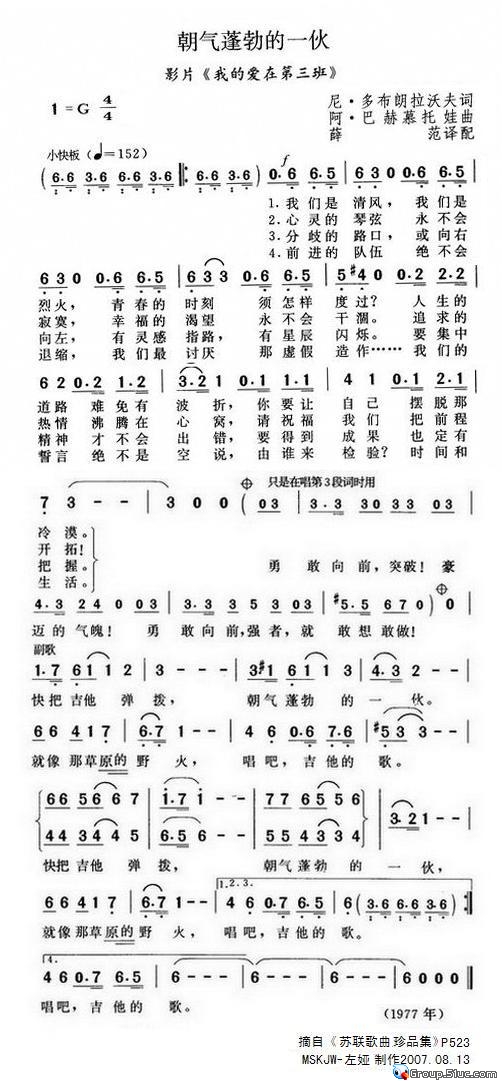 朝气蓬勃的一伙
影片《我的爱在第三班》
1=G 4/4
尼·多布朗拉沃夫词
阿·巴赫慕托娃曲
薛范译配
小快板 (♩=152)
(3·6 3·6 3·6 3·6 𝄆 3·6 3·6 3·6 3·6) 0·6 6·5
f
1.我们是 清风, 我们是
2.心灵的 琴弦 永不会
3.分歧的 路口, 或向右
4.前进的 队伍 绝不会
6 3 0 0·6 6·5 6 3 3 0·6 6·5 5 #4 0 2·2 2·1
烈火, 青春的 时刻 须怎样 度过? 人生的
寂寞, 幸福的 渴望 永不会 干涸。 追求的
向左, 有灵感 指路, 有星辰 闪烁。 要集中
退缩, 我们最 讨厌 那虚假 造作…… 我们的
6 2 0·2 1·2 3·2 1 0·2 1·2 4 1 0·7 1·2
道路 难免有 波折, 你要让 自己 摆脱那
热情 沸腾在 心窝, 请祝福 我们 把前程
精神 才不会 出错, 要得到 成果 也定有
誓言 绝不是 空说, 由谁来 检验? 时间和
7 3 - - 3 0 0 (03 03 03 3·3 3300 03
只是在唱第3段词时用
冷漠。
开拓!
把握。
生活。
勇敢向前,突破! 豪
4·3 24 0 03 3·3 33 0 03 #5·5 670 0)
迈的气魄! 勇敢向前,强者,就敢想敢做!
副歌
1·7 611 2 3 - - 3#1 611 6 4·3 2 - -
快把吉他 弹拨, 朝气蓬勃 的 一 伙。
66 417 6·7 1 - - 4 6 0·6 7·6 #5 3 - -
就像那草原的野火, 唱吧,吉他的歌。
66 5667 1·7 1 - - 77 5566 3·21 - -
44 3445 6·56 - - 55 3344
快把吉他 弹拨, 朝气蓬勃的 一 伙,
66 417 6·7 1 - - 4 6 0·7 6·5 6 (3·6 3·6 3·6 3·6) 𝄇
1.2.3.
就像那草原的野火, 唱吧,吉他的歌。
4.
4 6 0·7 6·5 6 - - - 6 - - - 6 0 0 0
唱吧,吉他的 歌。
(1977 年)
摘自《苏联歌曲珍品集》P523
MSKJW-左娅 制作2007.08.13
Group.51uc.com